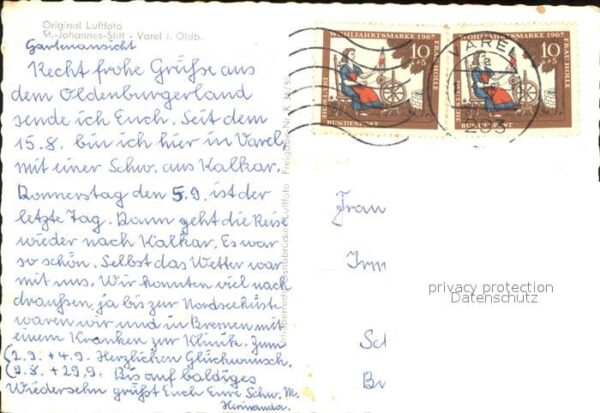 Original Luftfoto
St.-Johannes-Stift - Varel i. Oldb.
Gartenansicht
Recht frohe Grüße aus
dem Oldenburgerland
sende ich Euch. Seit dem
15.8. bin ich hier in Varel
mit einer Schw. aus Kalkar.
Donnerstag den 5.9. ist der
letzte Tag. Dann geht die Reise
wieder nach Kalkar. Es war
so schön. Selbst das Wetter war
mit uns. Wir konnten viel nach
draußen, ja bis zur Nordseeküste
waren wir und in Bremen mit
einem Kranken zur Klinik. Zum
2.9. + 4.9. Herzlichen Glückwunsch.
9.8. + 29.9. Bis auf baldiges
Wiedersehn grüßt Euch Eure Schw. M.
Herinanda.
WOHLFAHRTSMARKE 1967
10
+5
FRAU HOLLE
DEUTSCHE
BUNDESPOST
WOHLFAHRTSMARKE 1967
10
+5
FRAU HOLLE
DEUTSCHE
BUNDESPOST
VAREL
Frau
Irm
Sc
Br
privacy protection
Datenschutz